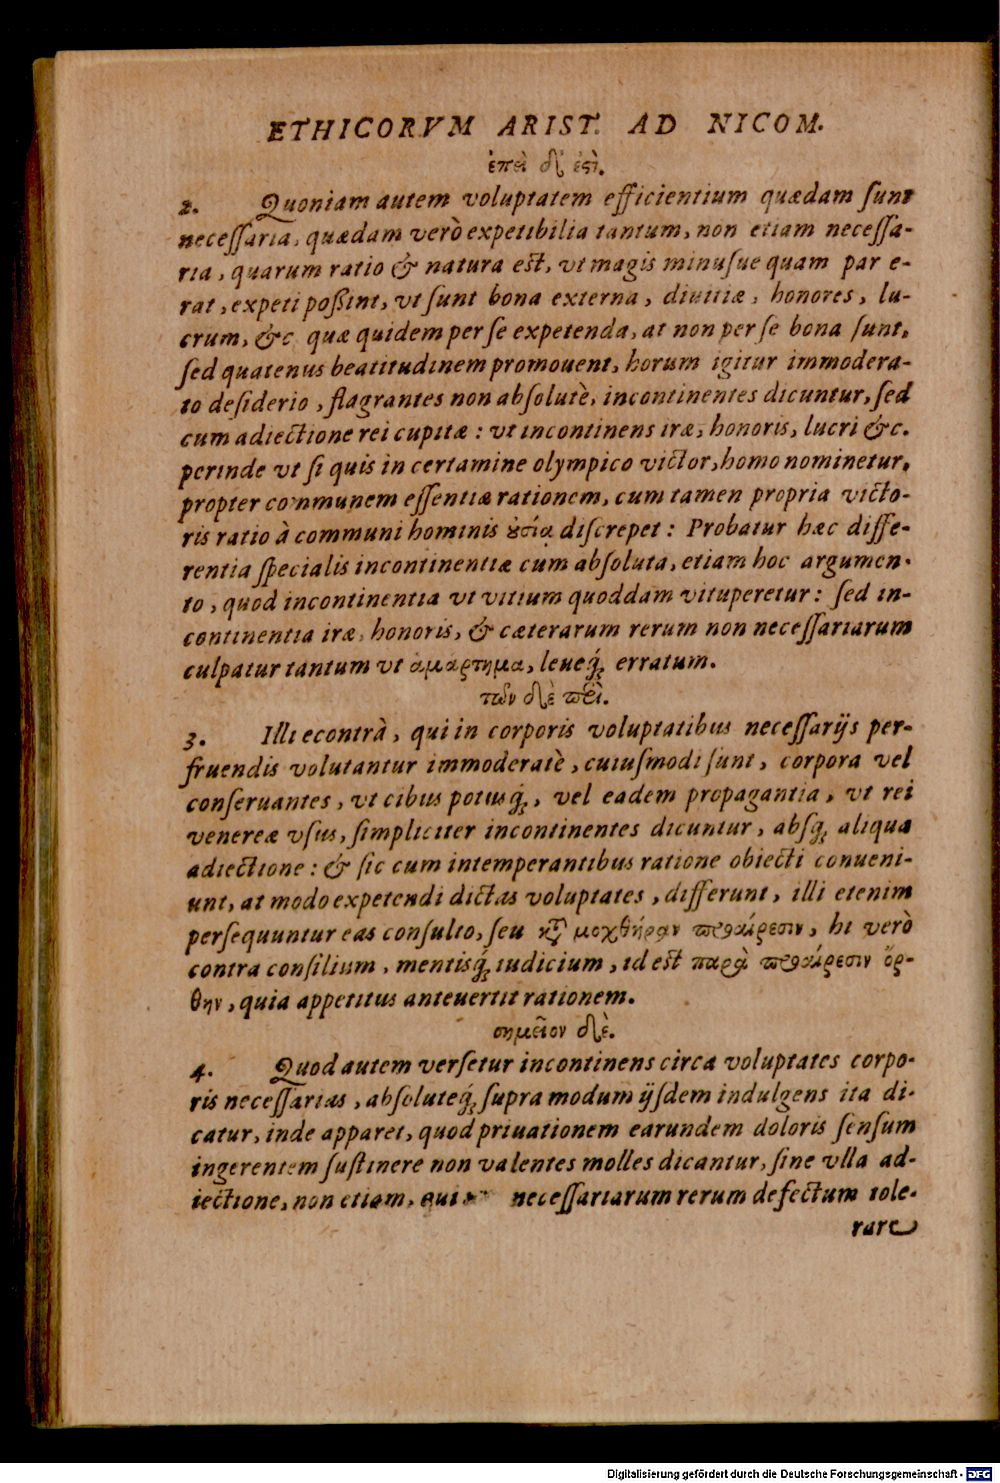 ETHICORVM ARIST. AD NICOM.
ἐπεὶ δ' ἐστὶ.
2. Quoniam autem voluptatem efficientium quædam sunt
necessaria, quædam verò expetibilia tantum, non etiam necessa-
ria, quarum ratio & natura est, vt magis minusue quam par e-
rat, expeti possint, vt sunt bona externa, diuitiæ, honores, lu-
crum, &c quæ quidem per se expetenda, at non per se bona sunt,
sed quatenus beatitudinem promouent, horum igitur immodera-
to desiderio, flagrantes non absolutè, incontinentes dicuntur, sed
cum adiectione rei cupitæ: vt incontinens iræ, honoris, lucri &c.
perinde vt si quis in certamine olympico victor, homo nominetur,
propter communem essentiæ rationem, cum tamen propria victo-
ris ratio à communi hominis ȣσίᾳ discrepet: Probatur hæc diffe-
rentia specialis incontinentiæ cum absoluta, etiam hoc argumen-
to, quod incontinentia vt vitium quoddam vituperetur: sed in-
continentia iræ, honoris, & cæterarum rerum non necessariarum
culpatur tantum vt ἁμάρτημα, leueq́; erratum.
τῶν δὲ περὶ.
3. Illi econtrà, qui in corporis voluptatibus necessarijs per-
fruendis volutantur immoderatè, cuiusmodi sunt, corpora vel
conseruantes, vt cibus potusq́;, vel eadem propagantia, vt rei
venereæ vsus, simpliciter incontinentes dicuntur, absq; aliqua
adiectione: & sic cum intemperantibus ratione obiecti conueni-
unt, at modo expetendi dictas voluptates, differunt, illi etenim
persequuntur eas consulto, seu κτ̀ μοχθήραν προαίρεσιν, hi verò
contra consilium, mentisq́; iudicium, id est παρὰ προαίρεσιν ὄρ-
θην, quia appetitus anteuertit rationem.
σημεῖον δὲ.
4. Quod autem versetur incontinens circa voluptates corpo-
ris necessarias, absoluteq́; supra modum ijsdem indulgens ita di-
catur, inde apparet, quod priuationem earundem doloris sensum
ingerentem sustinere non valentes molles dicantur, sine vlla ad-
iectione, non etiam, qui necessariarum rerum defectum tole-
rare
Digitalisierung gefördert durch die Deutsche Forschungsgemeinschaft - DFG